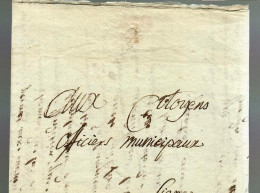 Aux Citoyens
officiers municipaux